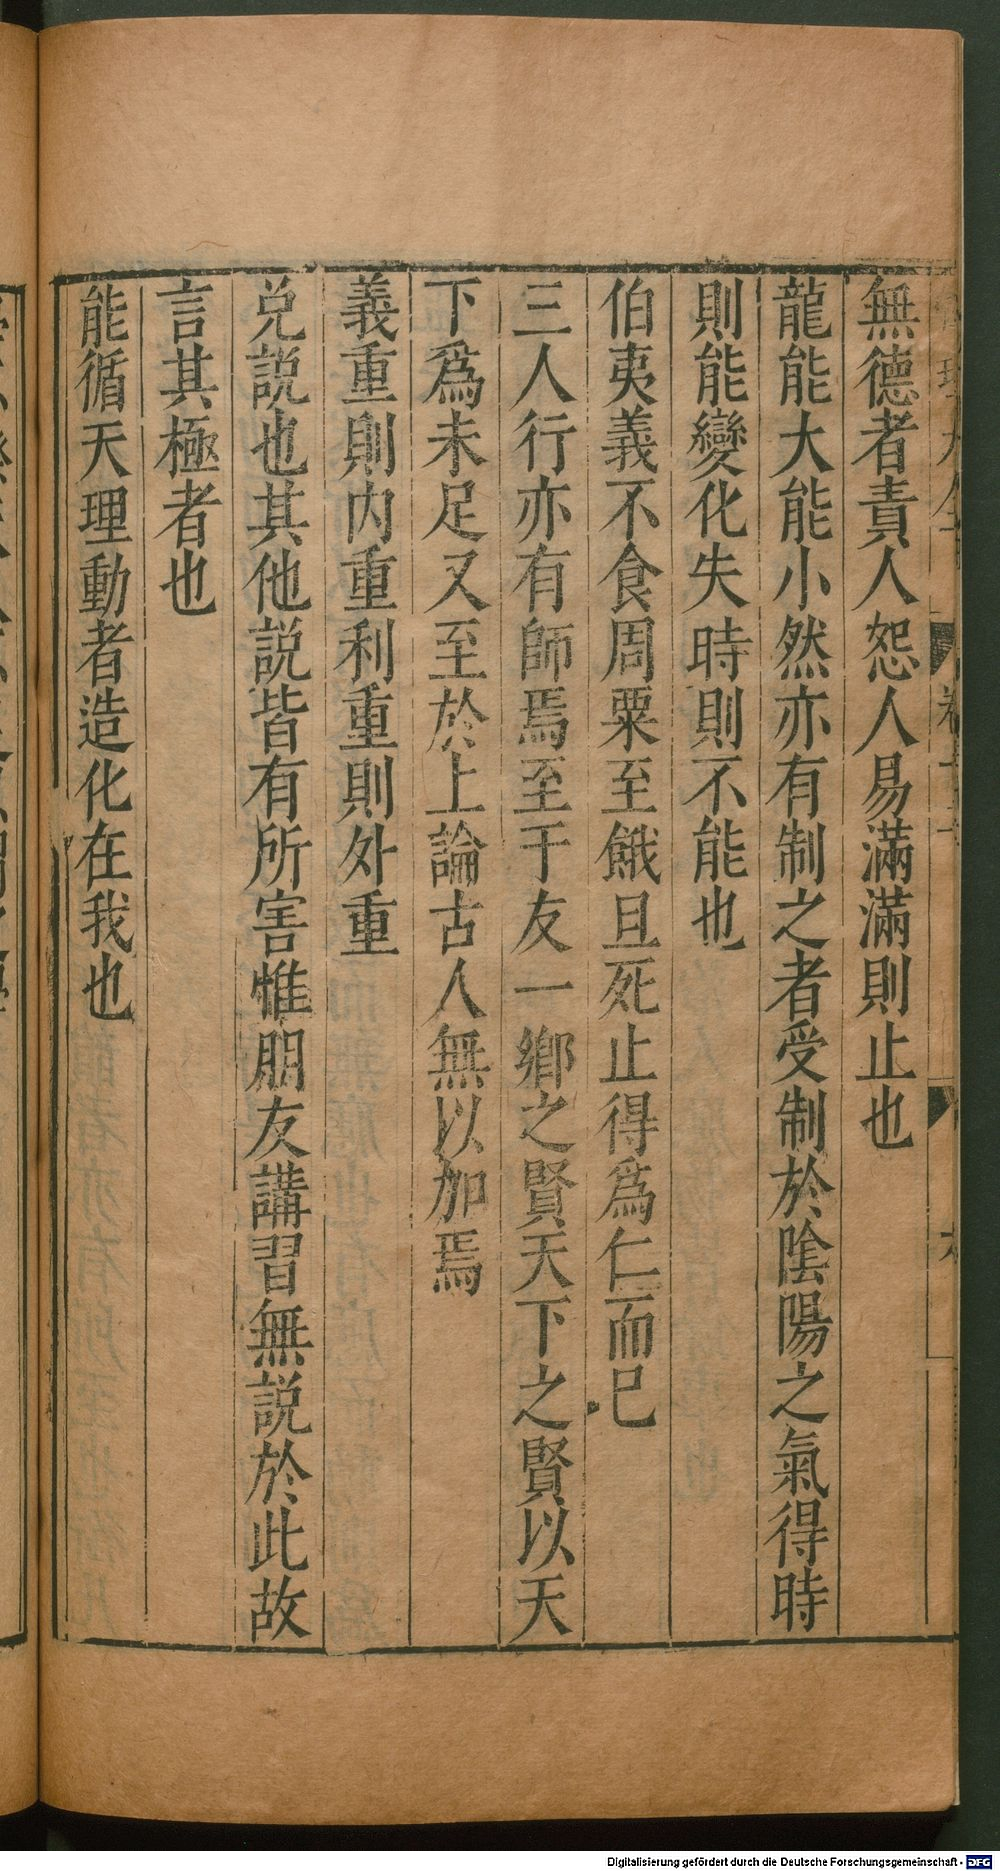 無德者責人怨人易滿滿則止也
龍能大能小然亦有制之者受制於陰陽之氣得時
則能變化失時則不能也
伯夷義不食周粟至餓且死止得爲仁而已
三人行亦有師焉至于友一鄉之賢天下之賢以天
下爲未足又至於上論古人無以加焉
義重則内重利重則外重
兌説也其他説皆有所害惟朋友講習無説於此故
言其極者也
能循天理動者造化在我也
Digitalisierung gefördert durch die Deutsche Forschungsgemeinschaft - DFG